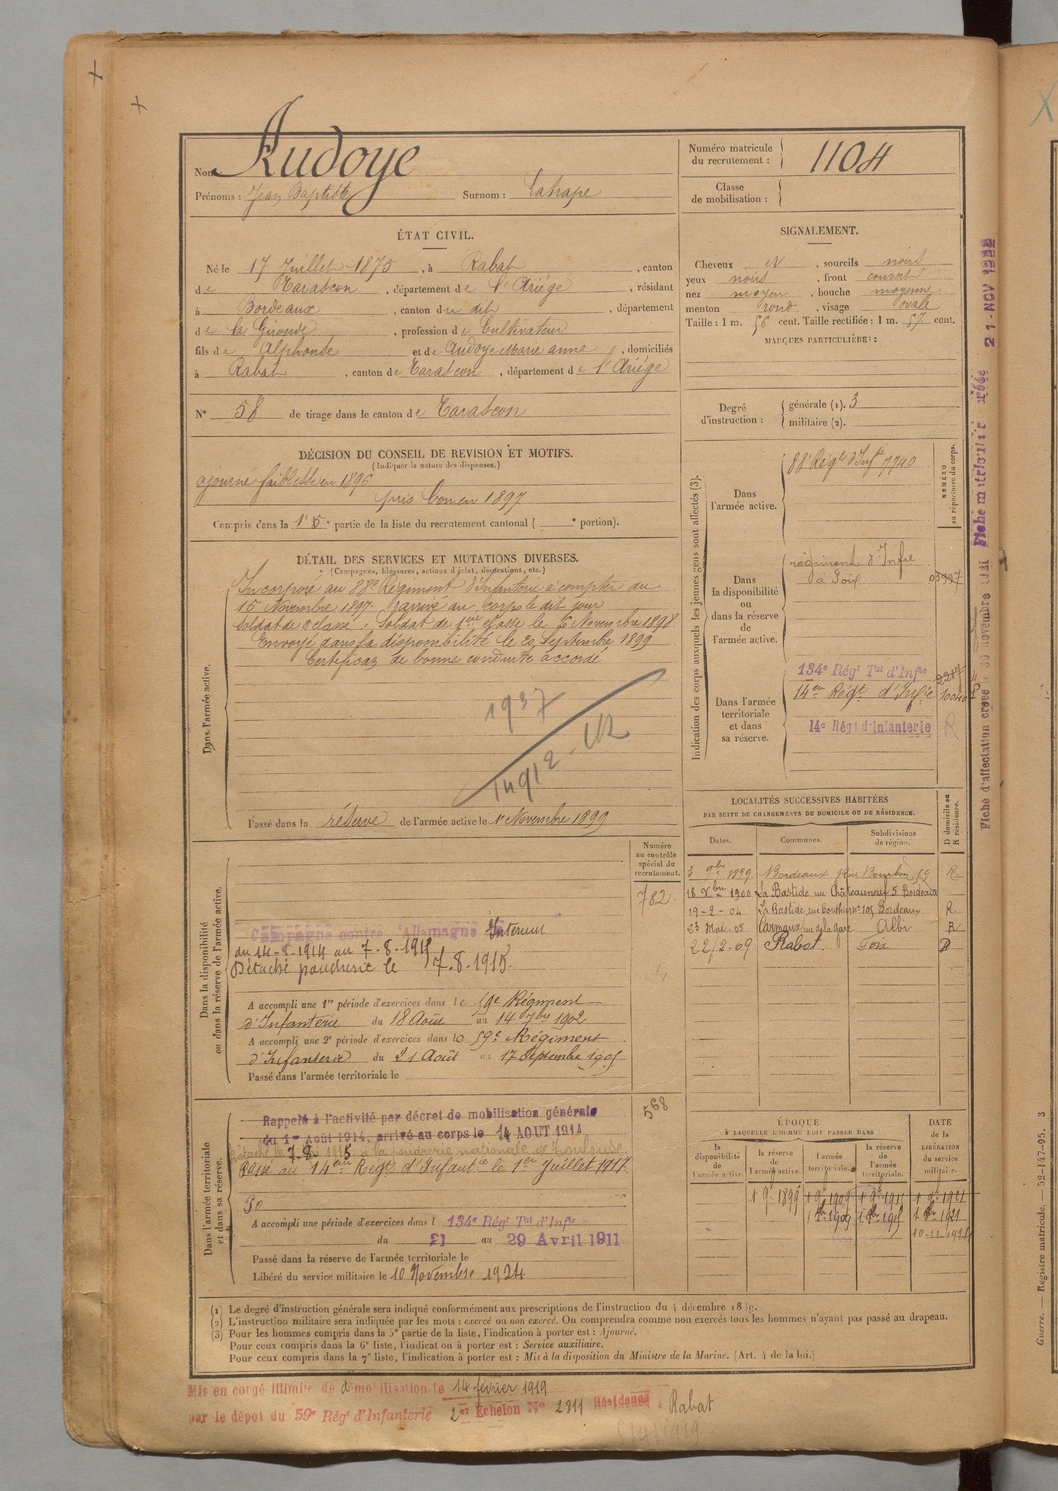 Nom : Audoye
Prénoms : Jean Baptiste Surnom : Latrape
Numéro matricule du recrutement : 1104
Classe de mobilisation :
ÉTAT CIVIL.
Né le 17 Juillet 1875, à Rabat, canton
de Tarascon, département de l'Ariège, résidant
à Bordeaux, canton du dit, département
de la Gironde, profession de Cultivateur
fils de Alphonse et de Audoye Marie anne, domiciliés
à Rabat, canton de Tarascon, département de l'Ariège
N° 58 de tirage dans le canton de Tarascon
SIGNALEMENT.
Cheveux N, sourcils noirs
yeux noirs, front couvert
nez moyen, bouche moyenne
menton rond, visage ovale
Taille : 1 m. 56 cent. Taille rectifiée : 1 m. 57 cent.
MARQUES PARTICULIÈRES :
Degré d'instruction : générale (1). 3
militaire (2).
DÉCISION DU CONSEIL DE REVISION ET MOTIFS.
(Indiquer la nature des dispenses.)
ajourné faiblesse en 1896
pris bon en 1897
Compris dans la 1re partie de la liste du recrutement cantonal ( ° portion).
DÉTAIL DES SERVICES ET MUTATIONS DIVERSES.
(Campagnes, blessures, actions d'éclat, décorations, etc.)
Dans l'armée active.
Incorporé au 88e Régiment d'Infanterie à compter du
15 Novembre 1897. arrivé au corps le dit jour
Soldat de 2e classe. Soldat de 1ère classe le 6 Novembre 1898
Envoyé dans la disponibilité le 20 Septembre 1899
Certificat de bonne conduite accordé
1937
Passé dans la réserve de l'armée active le 1er Novembre 1899
Indication des corps auxquels les jeunes gens sont affectés (3).
NUMÉRO au répertoire du corps.
Dans l'armée active.
88e Régt d'Infie 7740
Dans la disponibilité ou dans la réserve de l'armée active.
régiment d'Infie
à Foix
Dans l'armée territoriale et dans sa réserve.
134e Régt Tal d'Infie
14ème Régt d'Infie
14e Régt d'Infanterie
R
LOCALITÉS SUCCESSIVES HABITÉES
PAR SUITE DE CHANGEMENTS DE DOMICILE OU DE RÉSIDENCE.
Dates. Communes. Subdivisions de région. D domicile ou R résidence.
3 9bre 1899 Bordeaux rue Bourbon 59 R
18 Xbre 1900 La Bastide rue Châteauneuf 5 Bordeaux
19-2-04 La Bastide, rue 105 Bordeaux R
23 Mai 05 Carmaux rue de la gare Albi R
22/2-09 Rabat Foix D
Dans la disponibilité ou dans la réserve de l'armée active.
Numéro au contrôle spécial du recrutement.
782
Campagne contre l'Allemagne Intérieur
du 14-8-1914 au 7.8.1915
Détaché poudrerie le 7.8.1915.
A accompli une 1re période d'exercices dans le 59e Régiment
d'Infanterie du 18 Août au 14 7bre 1902
A accompli une 2e période d'exercices dans le 59e Régiment
d'Infanterie du 21 Août au 17 Septembre 1905
Passé dans l'armée territoriale le
Dans l'armée territoriale et dans sa réserve.
568
Rappelé à l'activité par décret de mobilisation générale
du 1er Août 1914, arrivé au corps le 14 AOUT 1914
Détaché le 7.8.1915 à la poudrerie nationale de Toulouse.
Passé au 14ème Régt d'Infanterie le 1er Juillet 1917
A accompli une période d'exercices dans l 134e Régt Tal d'Infie
du 21 au 29 Avril 1911
Passé dans la réserve de l'armée territoriale le
Libéré du service militaire le 10 Novembre 1924
ÉPOQUE
À LAQUELLE L'HOMME DOIT PASSER DANS
la disponibilité de l'armée active
la réserve de l'armée active.
l'armée territoriale.
la réserve de l'armée territoriale.
DATE de la LIBÉRATION du service militaire.
1 9e 1899 1 9e 1909 1 9e 1915 1 9e 1921
1 8bre 1909 1 8bre 1915 1 8bre 1921
(1) Le degré d'instruction générale sera indiqué conformément aux prescriptions de l'instruction du 4 décembre 1889.
(2) L'instruction militaire sera indiquée par les mots : exercé ou non exercé. On comprendra comme non exercés tous les hommes n'ayant pas passé au drapeau.
(3) Pour les hommes compris dans la 5e partie de la liste, l'indication à porter est : Ajourné.
Pour ceux compris dans la 6e liste, l'indication à porter est : Service auxiliaire.
Pour ceux compris dans la 7e liste, l'indication à porter est : Mis à la disposition du Ministre de la Marine. (Art. 4 de la loi.)
Mis en congé illimité de démobilisation le 14 février 1919
par le dépôt du 59e Régt d'Infanterie 2er Echelon N° 2311 Résidence : Rabat
Guerre. — Registre matricule. — 52-147-95. 3